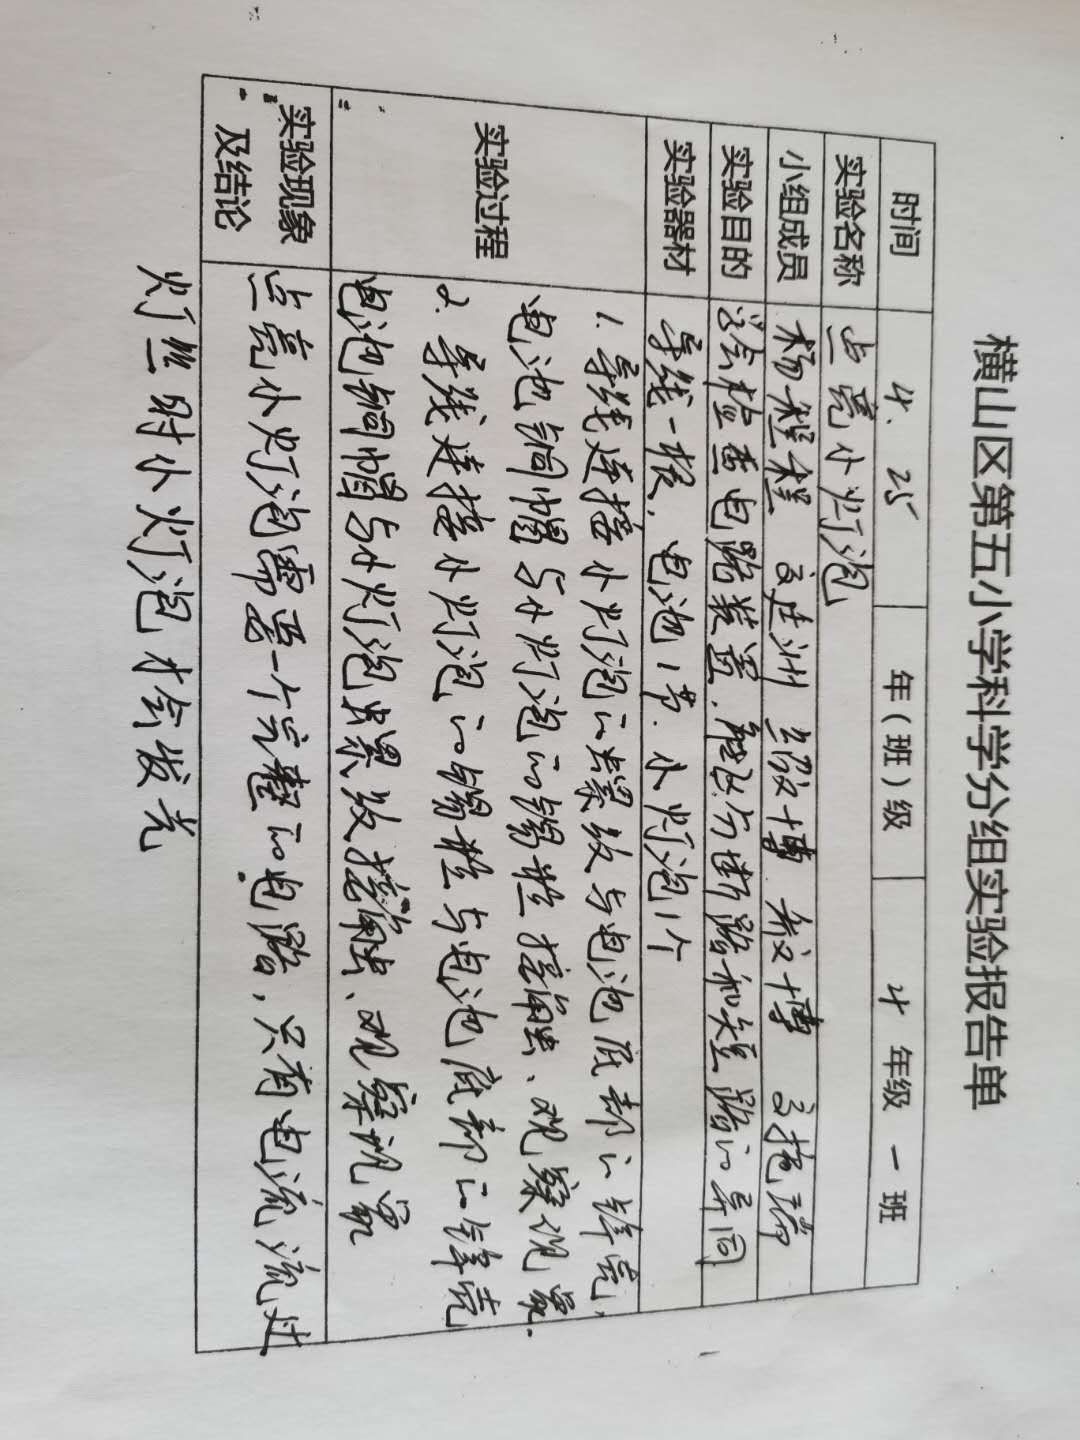 横山区第五小学科学分组实验报告单
时间 4. 25 年(班)级 4 年级 一 班
实验名称 点亮小灯泡
小组成员 杨程程
实验目的 学会检查电路装置,能区分断路和短路的异同
实验器材 导线一根. 电池1节. 小灯泡1个
实验过程
1. 导线连接小灯泡的螺纹与电池底部的锌壳,
电池铜帽与小灯泡的锡粒接触、观察现象.
2. 导线连接小灯泡的锡粒与电池底部的锌壳
电池铜帽与小灯泡螺纹接触、观察现象
实验现象
及结论
点亮小灯泡需要一个完整的电路,只有电流流过
灯丝时小灯泡才会发光